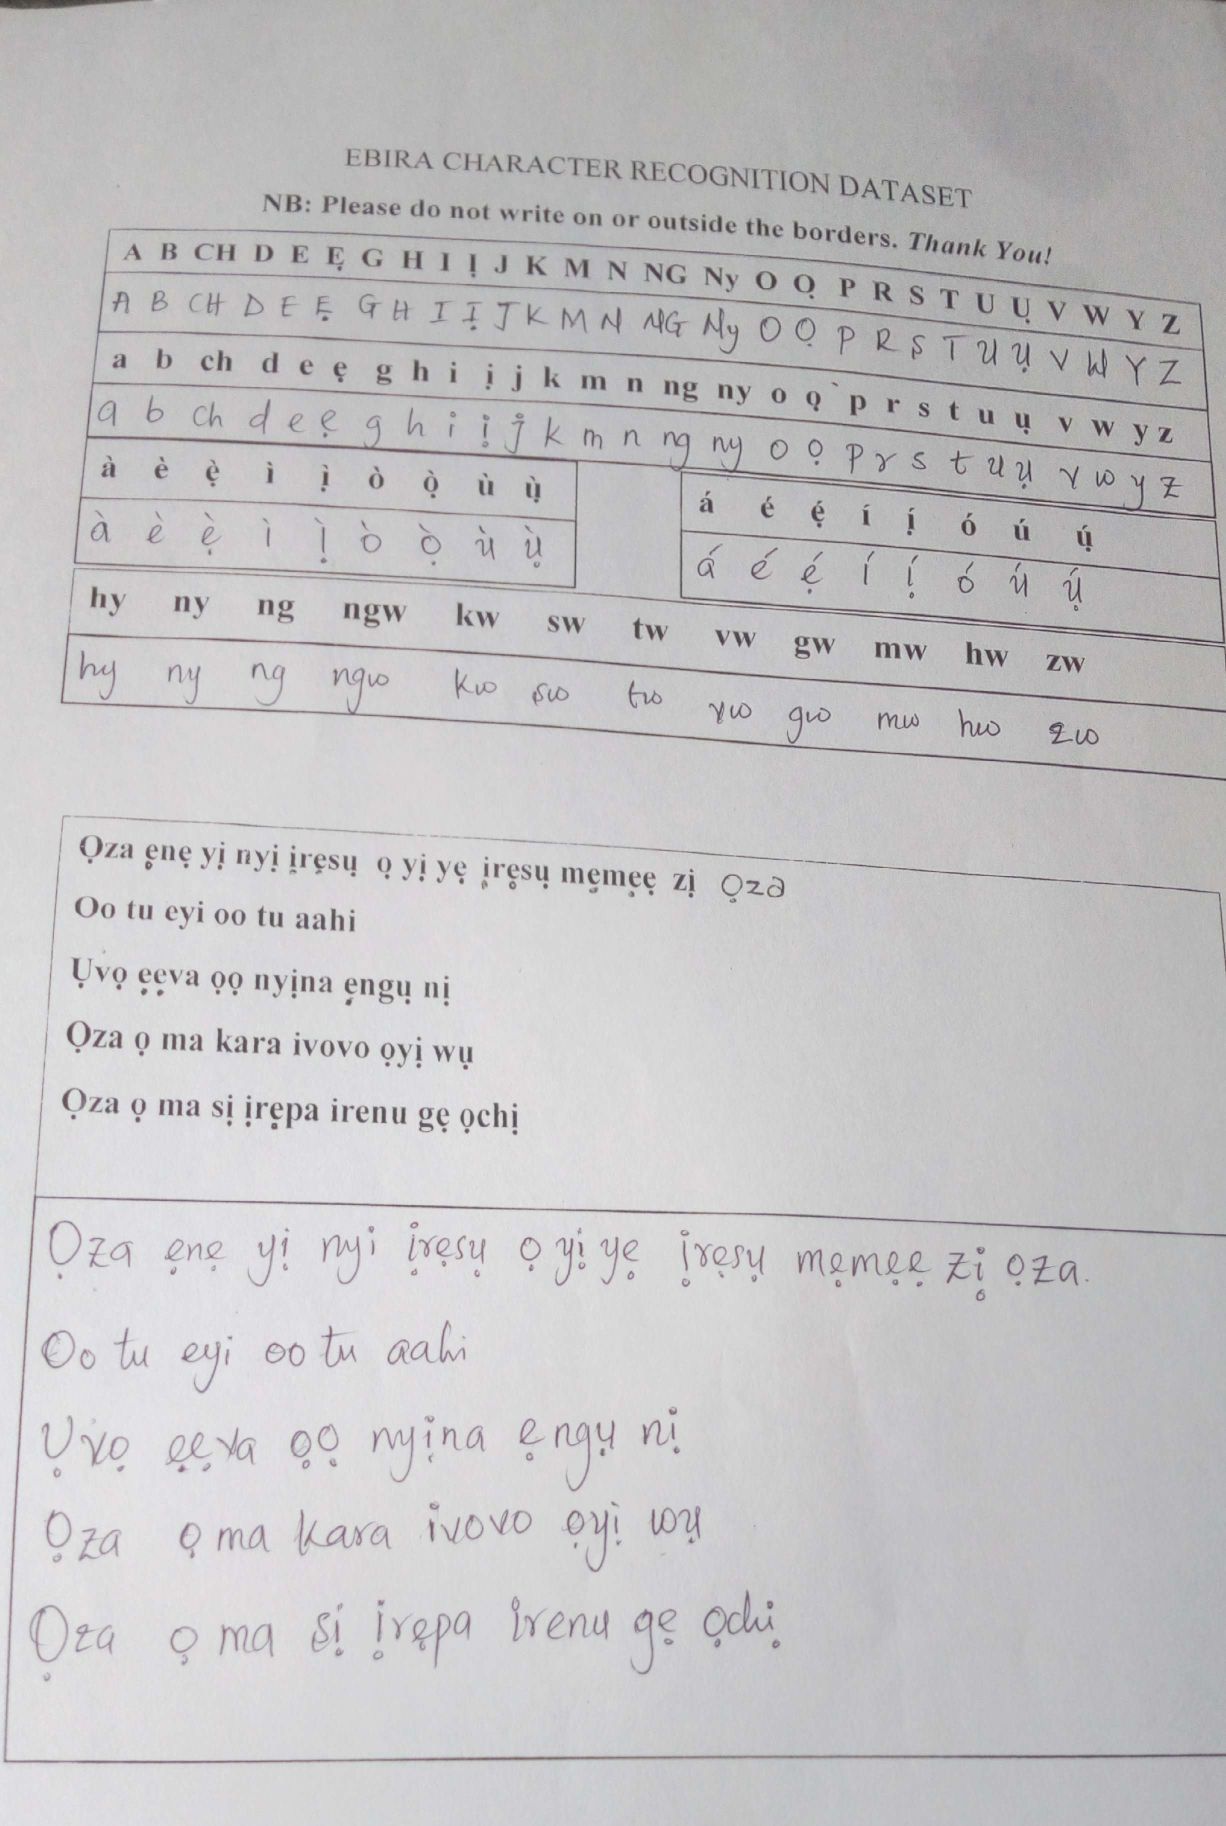 EBIRA CHARACTER RECOGNITION DATASET
NB: Please do not write on or outside the borders. Thank You!
A B CH D E Ẹ G H I Ị J K M N NG Ny O Ọ P R S T U Ụ V W Y Z
A B CH D E Ẹ G H I Ị J K M N NG Ny O Ọ P R S T U Ụ V W Y Z
a b ch d e ẹ g h i ị j k m n ng ny o ọ p r s t u ụ v w y z
a b ch d e ẹ g h i ị j k m n ng ny o ọ p r s t u ụ v w y z
à è ẹ̀ ì ị̀ ò ọ̀ ù ụ̀
á é ẹ́ í ị́ ó ú ụ́
à è ẹ̀ ì ị̀ ò ọ̀ ù ụ̀
á é ẹ́ í ị́ ó ú ụ́
hy ny ng ngw kw sw tw vw gw mw hw zw
hy ny ng ngw kw sw tw vw gw mw hw zw
Ọza ẹnẹ yị nyị ịrẹsụ ọ yị yẹ ịrẹsụ mẹmẹẹ zị Ọza
Oo tu eyi oo tu aahi
Ụvọ ẹẹva ọọ nyịna ẹngụ nị
Ọza ọ ma kara ivovo ọyị wụ
Ọza ọ ma sị ịrẹpa irenu gẹ ọchị
Ọza ẹnẹ yị nyi ịrẹsụ ọ yị yẹ ịrẹsụ mẹmẹẹ zị ọza.
Oo tu eyi oo tu aahi
Ụvọ ẹẹva ọọ nyịna ẹngụ nị
Ọza ọ ma kara ivovo ọyị wụ
Ọza ọ ma sị ịrẹpa irenu gẹ ọchị